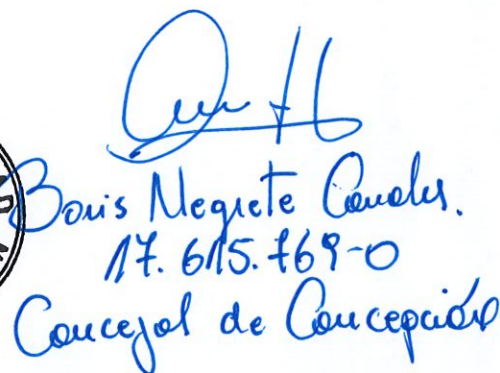 Boris Negrete Canales.
17.615.769-0
Concejal de Concepción